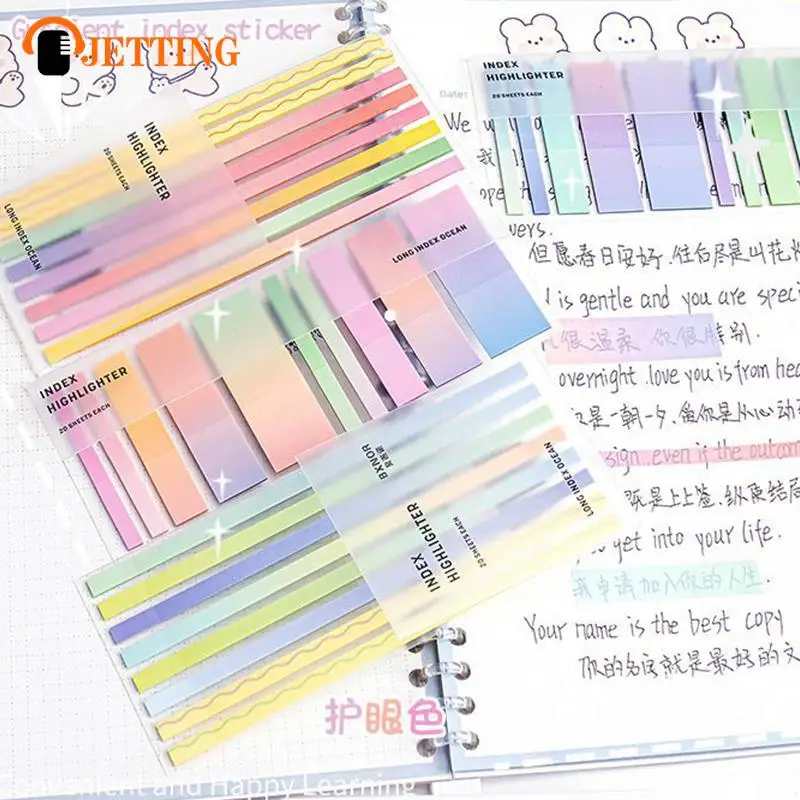 Gradient index sticker
JETTING
INDEX
HIGHLIGHTER
20 SHEETS EACH
LONG INDEX OCEAN
INDEX
HIGHLIGHTER
20 SHEETS EACH
Date:
We
我
vers.
但愿春日安好,往后尽是叫花
is gentle and you are spec
很温柔 你很特别.
overnight.love you is from hea
是一朝一夕,鱼你是从心动
sign.even if the outcom
既是上上签,纵使结局
get into your life.
我申请加入你的人生.
Your name is the best copy
你的名字就是最好的文
LONG INDEX OCEAN
INDEX
HIGHLIGHTER
20 SHEETS EACH
BXNOR
INDEX
HIGHLIGHTER
20 SHEETS EACH
LONG INDEX OCEAN
护眼色
Convenient and Happy Learning